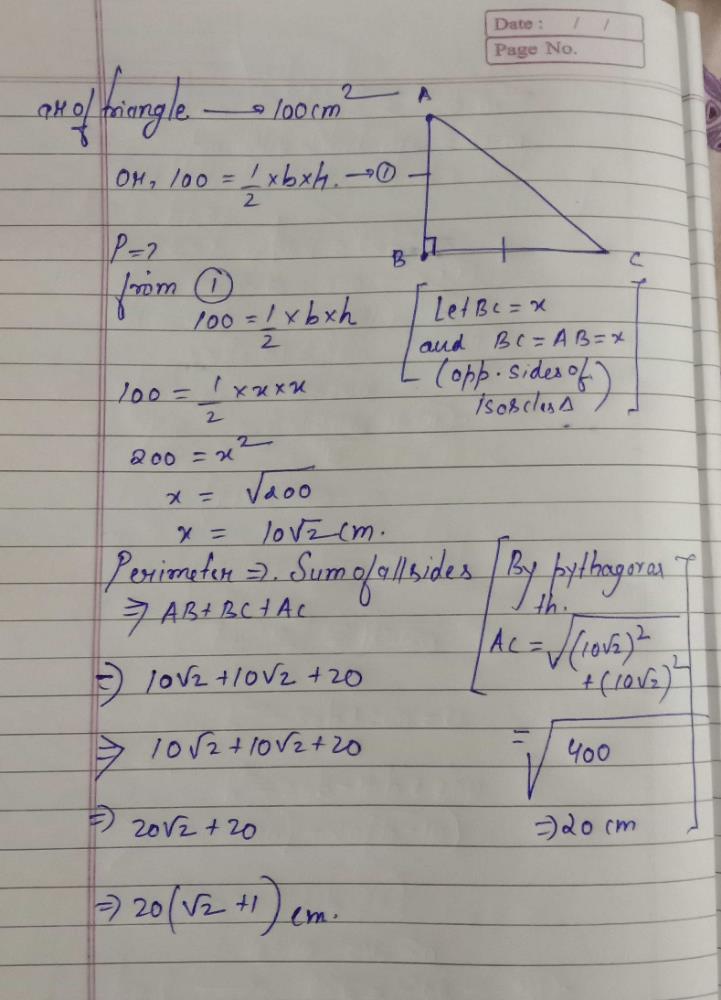 Date : / /
Page No.
ar of triangle → 100 cm²
or, 100 = 1/2 × b × h. → ①
A
B
C
P = ?
from ①
100 = 1/2 × b × h
[Let BC = x
and BC = AB = x
(opp. sides of
isosclesΔ)]
100 = 1/2 × x × x
200 = x²
x = √200
x = 10√2 cm.
Perimeter ⇒. Sum of all sides
⇒ AB + BC + AC
[By pythagoras
th.
AC = √(10√2)²
+ (10√2)²
= √400
⇒ 20 cm]
⇒ 10√2 + 10√2 + 20
⇒ 10√2 + 10√2 + 20
⇒ 20√2 + 20
⇒ 20(√2 + 1) cm.